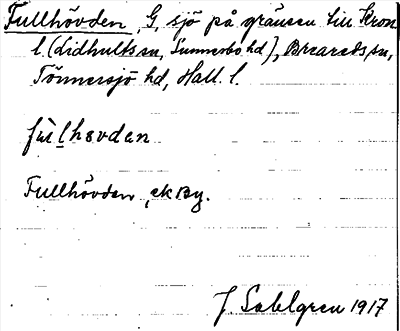 Fullhövden, G, sjö på gränsen till Kron.
l. (Lidhults sn, Sunnerbo hd), Breareds sn,
Tönnersjö hd, Hall. l.
fùl̲høvdən
Fullhövden, ek By.
J. Sahlgren 1917